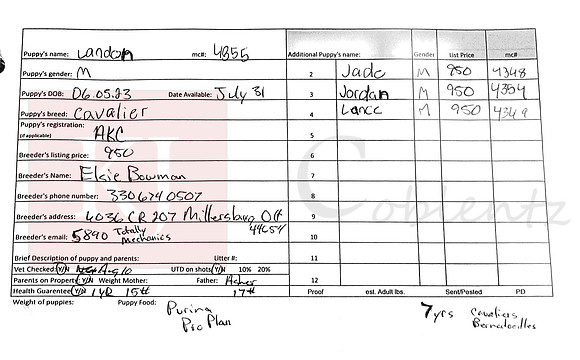 Puppy's name: Landon mc#: 4355 Additional Puppy's name: Gender List Price mc#
Puppy's gender: M 2 Jade M 950 4348
Puppy's DOB: 06.05.23 Date Available: July 31 3 Jordan M 950 4354
Puppy's breed: Cavalier 4 Lance M 950 4349
Puppy's registration: (if applicable) AKC 5
Breeder's listing price: 950 6
Breeder's Name: Elsie Bowman 7
Breeder's phone number: 330 674 0507 8
Breeder's address: 4036 CR 207 Millersburg OH 44654 9
Breeder's email: 5890 Totally Mechanics 10
Brief Description of puppy and parents: Litter #: 11
Vet Checked: Y/N UTD on shots Y/N 10% 20%
Parents on Property Y/N Weight Mother: Father: 12
Health Guarantee Y/N 1 yr 15# 17# Proof est. Adult lbs. Sent/Posted PD
Weight of puppies: Puppy Food: Purina Pro Plan 7 yrs Cavaliers Bernedoodles
Coblentz